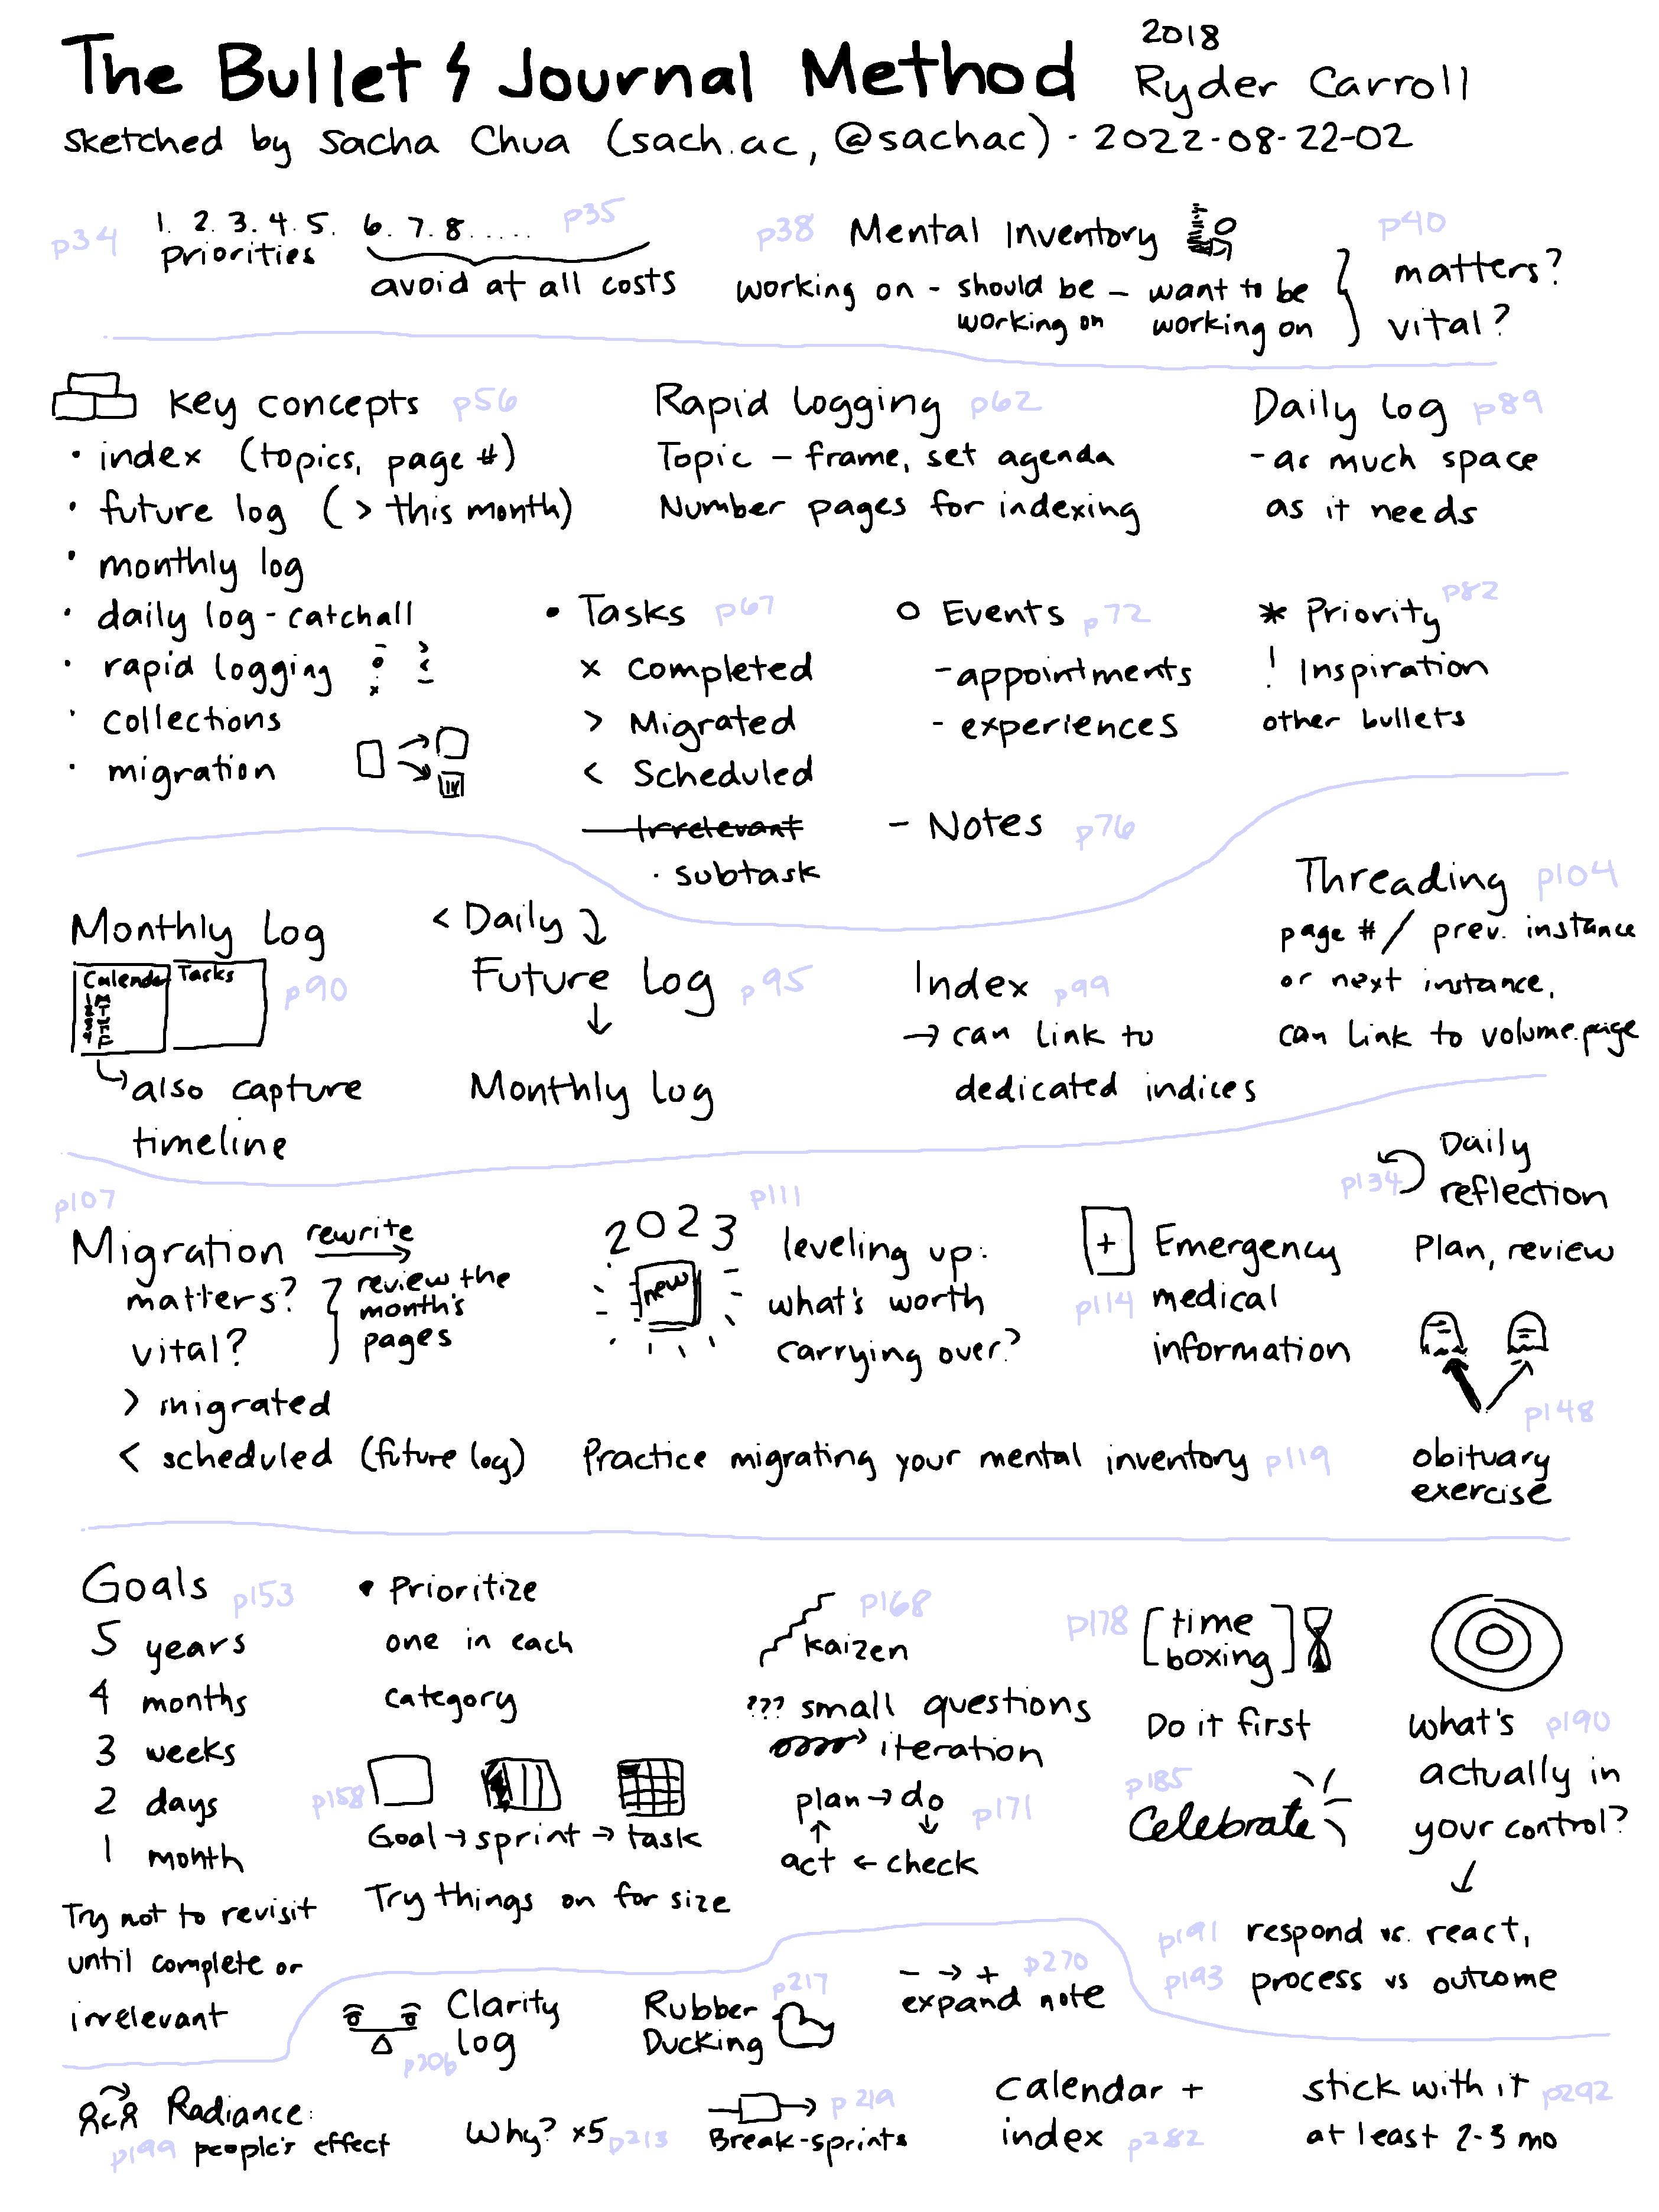 The Bullet Journal Method 2018 Ryder Carroll
sketched by Sacha Chua (sach.ac, @sachac) · 2022-08-22-02
p34
1. 2. 3. 4. 5.
priorities
6. 7. 8. . . . . .
p35
avoid at all costs
p38 Mental Inventory
working on - should be working on - want to be working on
p40
matters?
vital?
key concepts p56
· index (topics, page #)
· future log (> this month)
· monthly log
· daily log - catchall
· rapid logging - o x > < -
· collections
· migration
Rapid logging p62
Topic – frame, set agenda
Number pages for indexing
Daily log p89
- as much space
as it needs
• Tasks p67
x Completed
> Migrated
< Scheduled
Irrelevant
· subtask
o Events p72
- appointments
- experiences
– Notes p76
* Priority p82
! Inspiration
other bullets
Monthly Log
Calendar Tasks
1 M
2 T
3 W
4 T
5 F
p90
also capture
timeline
< Daily
Future log p95
↓
Monthly log
Index p99
→ can link to
dedicated indices
Threading p104
page # / prev. instance
or next instance,
can link to volume.page
p107
Migration rewrite
matters?
vital?
review the
month's
pages
> migrated
< scheduled (future log)
2023
new
p111
leveling up:
what's worth
carrying over?
+ Emergency
p114 medical
information
p134 Daily
reflection
Plan, review
p148
obituary
exercise
Practice migrating your mental inventory p119
Goals p153
5 years
4 months
3 weeks
2 days
1 month
Try not to revisit
until complete or
irrelevant
• Prioritize
one in each
category
p158
Goal → sprint → task
Try things on for size
p168
kaizen
??? small questions
iteration
plan → do
↑ ↓ p171
act ← check
p178 [time
boxing]
Do it first
p185
Celebrate
what's p190
actually in
your control?
↓
p191 respond vs. react,
p193 process vs outcome
Clarity
log
p206
p217
Rubber
Ducking
– → + p270
expand note
Radiance:
p199 people's effect
Why? x5 p213
p219
Break-sprints
calendar +
index p282
stick with it p292
at least 2-3 mo